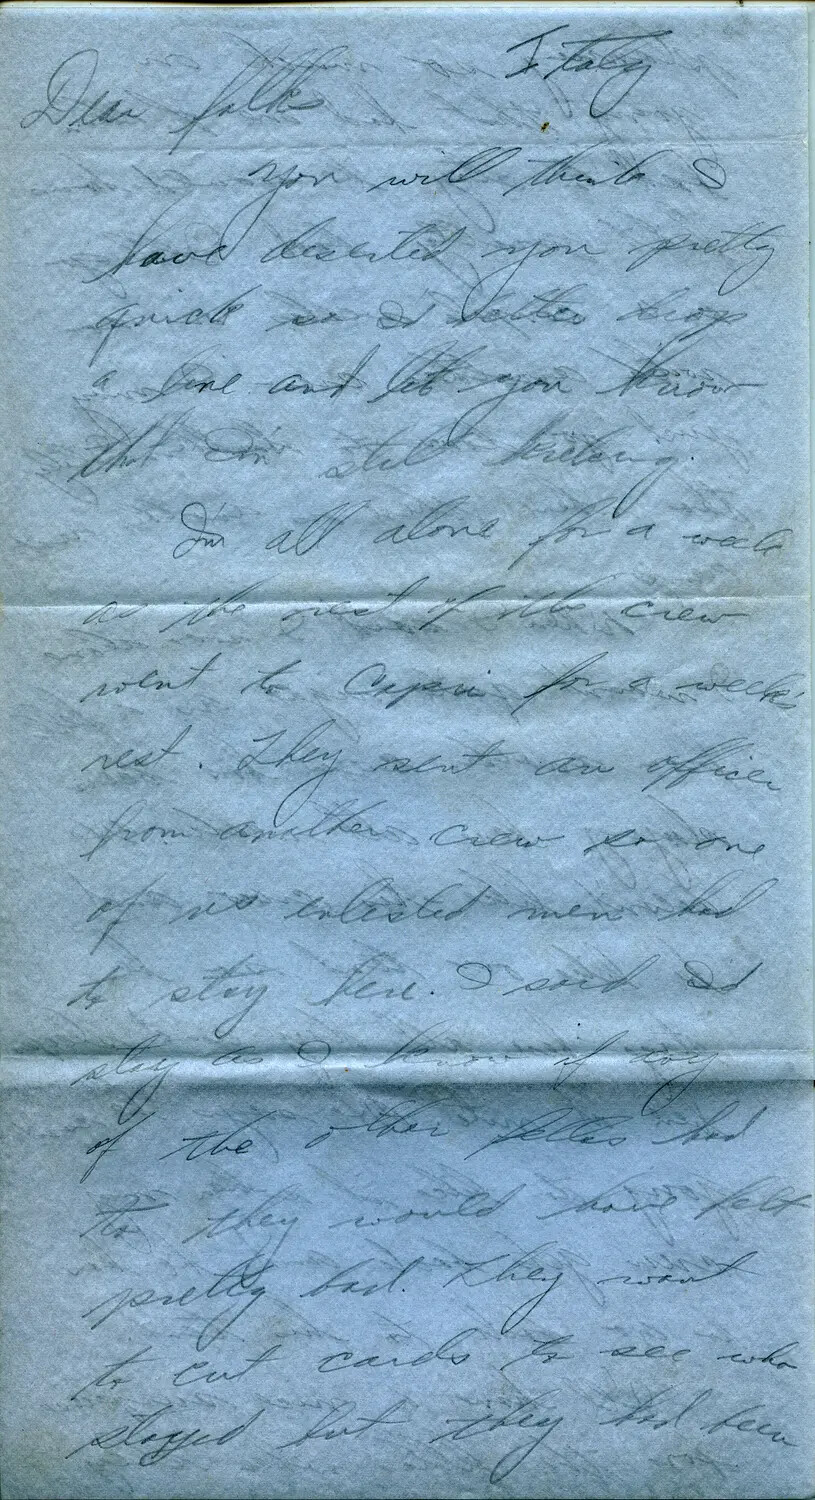 Italy
Dear folks
You will think I
have deserted you pretty
quick so I better drop
a line and let you know
that I'm still kicking.
I'm all alone for a week
as the rest of the crew
went to Capri for a week's
rest. They sent an officer
from another crew so one
of us enlisted men had
to stay here. I said I'd
stay as I know if any
of the other fellas had
to they would have felt
pretty bad. They want
to cut cards to see who
stayed but they had been